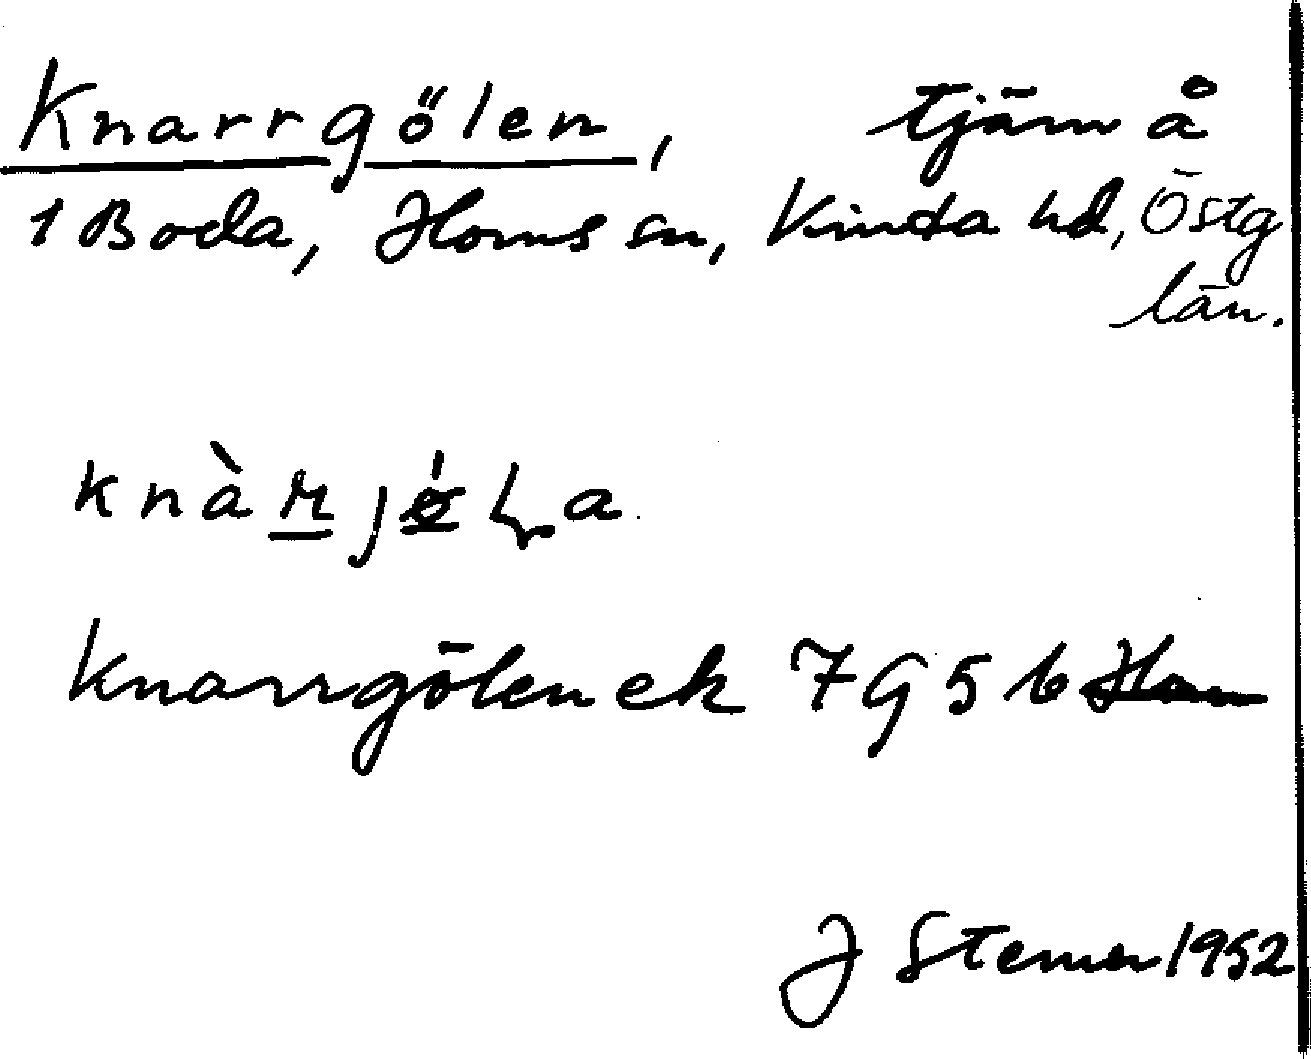 Knarrgölen, tjärn å
1 Boda, Horns sn, Kinda hd, Östg
län.
Knarrgölen ek 7G5b
J Stemer 1952